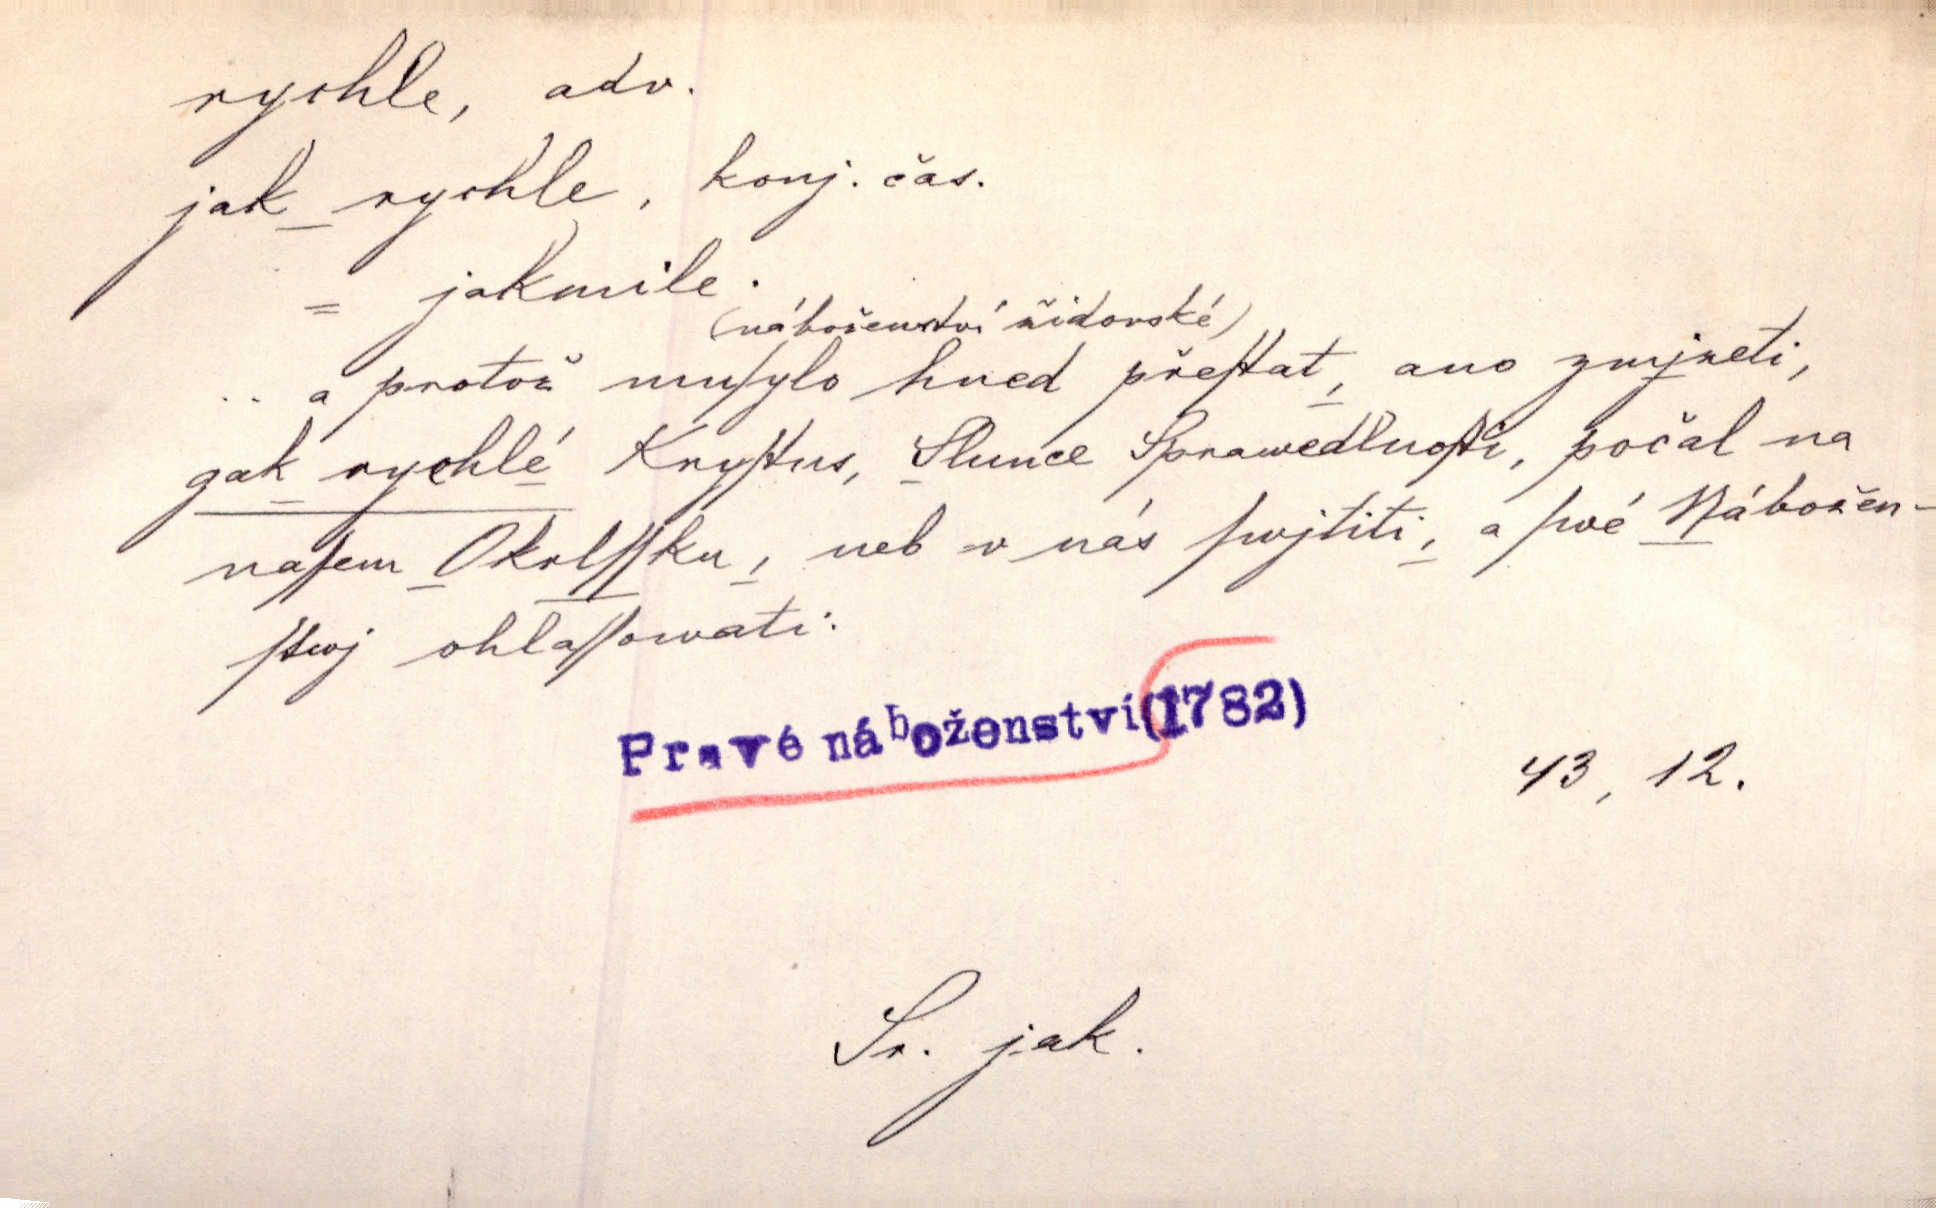 rychle, adv.
jak rychle, konj. čas.
= jakmile.
(náboženství židovské)
.. a protož muſylo hned přeſtat, ano zmjzeti,
gak rychlé Kryſtus, Slunce Sprawedlnoſti, počal na
naſem Okrlſſku, neb v nás ſwjtiti, a ſwé Nábožen-
ſtwj ohlaſſowati.
Pravé náboženství (1782)
43, 12.
Sr. jak.